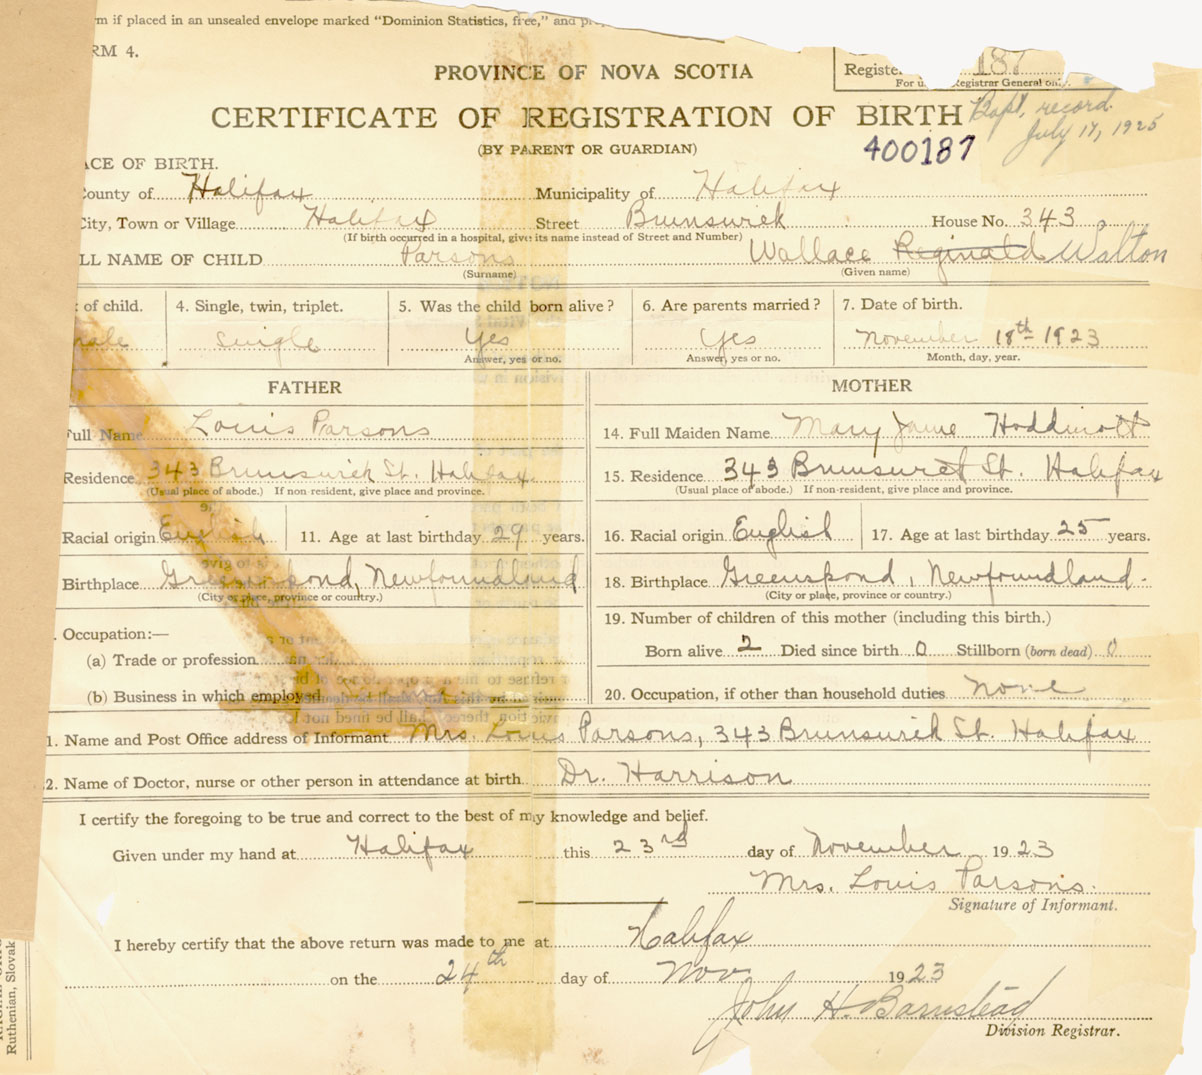 rm if placed in an unsealed envelope marked "Dominion Statistics, free," and
RM 4.
PROVINCE OF NOVA SCOTIA
Registe 187
For u Registrar General only.
CERTIFICATE OF REGISTRATION OF BIRTH
Bapt. record
July 17, 1925
(BY PARENT OR GUARDIAN)
400187
ACE OF BIRTH.
County of Halifax Municipality of Halifax
City, Town or Village Halifax Street Brunswick House No. 343
(If birth occurred in a hospital, give its name instead of Street and Number)
LL NAME OF CHILD Parsons Wallace Reginald Walton
(Surname) (Given name)
of child. 4. Single, twin, triplet. 5. Was the child born alive? 6. Are parents married? 7. Date of birth.
male Single Yes Yes November 18th 1923
Answer, yes or no. Answer, yes or no. Month, day, year.
FATHER MOTHER
Full Name Louis Parsons 14. Full Maiden Name Mary Jane Hoddinott
Residence 343 Brunswick St. Halifax 15. Residence 343 Brunswick St. Halifax
(Usual place of abode.) If non-resident, give place and province. (Usual place of abode.) If non-resident, give place and province.
Racial origin English 11. Age at last birthday 29 years. 16. Racial origin English 17. Age at last birthday 25 years.
Birthplace Greenspond, Newfoundland 18. Birthplace Greenspond, Newfoundland.
(City or place, province or country.) (City or place, province or country.)
19. Number of children of this mother (including this birth.)
. Occupation:—
Born alive 2 Died since birth 0 Stillborn (born dead) 0
(a) Trade or profession
(b) Business in which employed 20. Occupation, if other than household duties None
1. Name and Post Office address of Informant Mrs. Louis Parsons, 343 Brunswick St. Halifax
2. Name of Doctor, nurse or other person in attendance at birth Dr. Harrison
I certify the foregoing to be true and correct to the best of my knowledge and belief.
Given under my hand at Halifax this 23rd day of November 1923
Mrs. Louis Parsons.
Signature of Informant.
I hereby certify that the above return was made to me at Halifax
on the 24th day of Nov 1923
John H. Barnstead
Division Registrar.
Ruthenian, Slovak